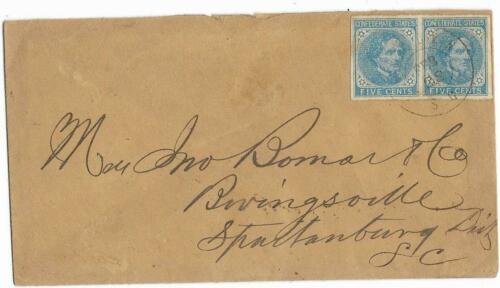 CONFEDERATE STATES CONFEDERATE STATES
FIVE CENTS FIVE CENTS
Mess Jno Bomar & Co
Bivingsville
Spartanburg Dist
SC